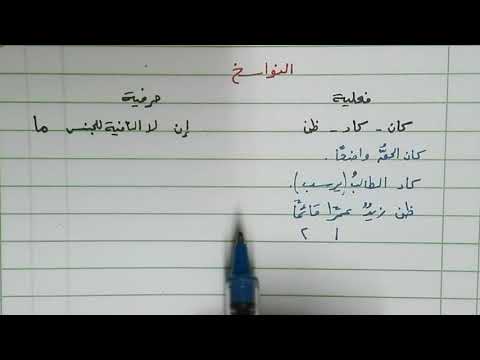 النواسخ
فعلية حرفية
كان - كاد - ظن إن لا النافية للجنس ما
كان الحقُّ واضحًا.
كاد الطالبُ (يرسب).
ظن زيدٌ عمرًا قائمًا
١ ٢